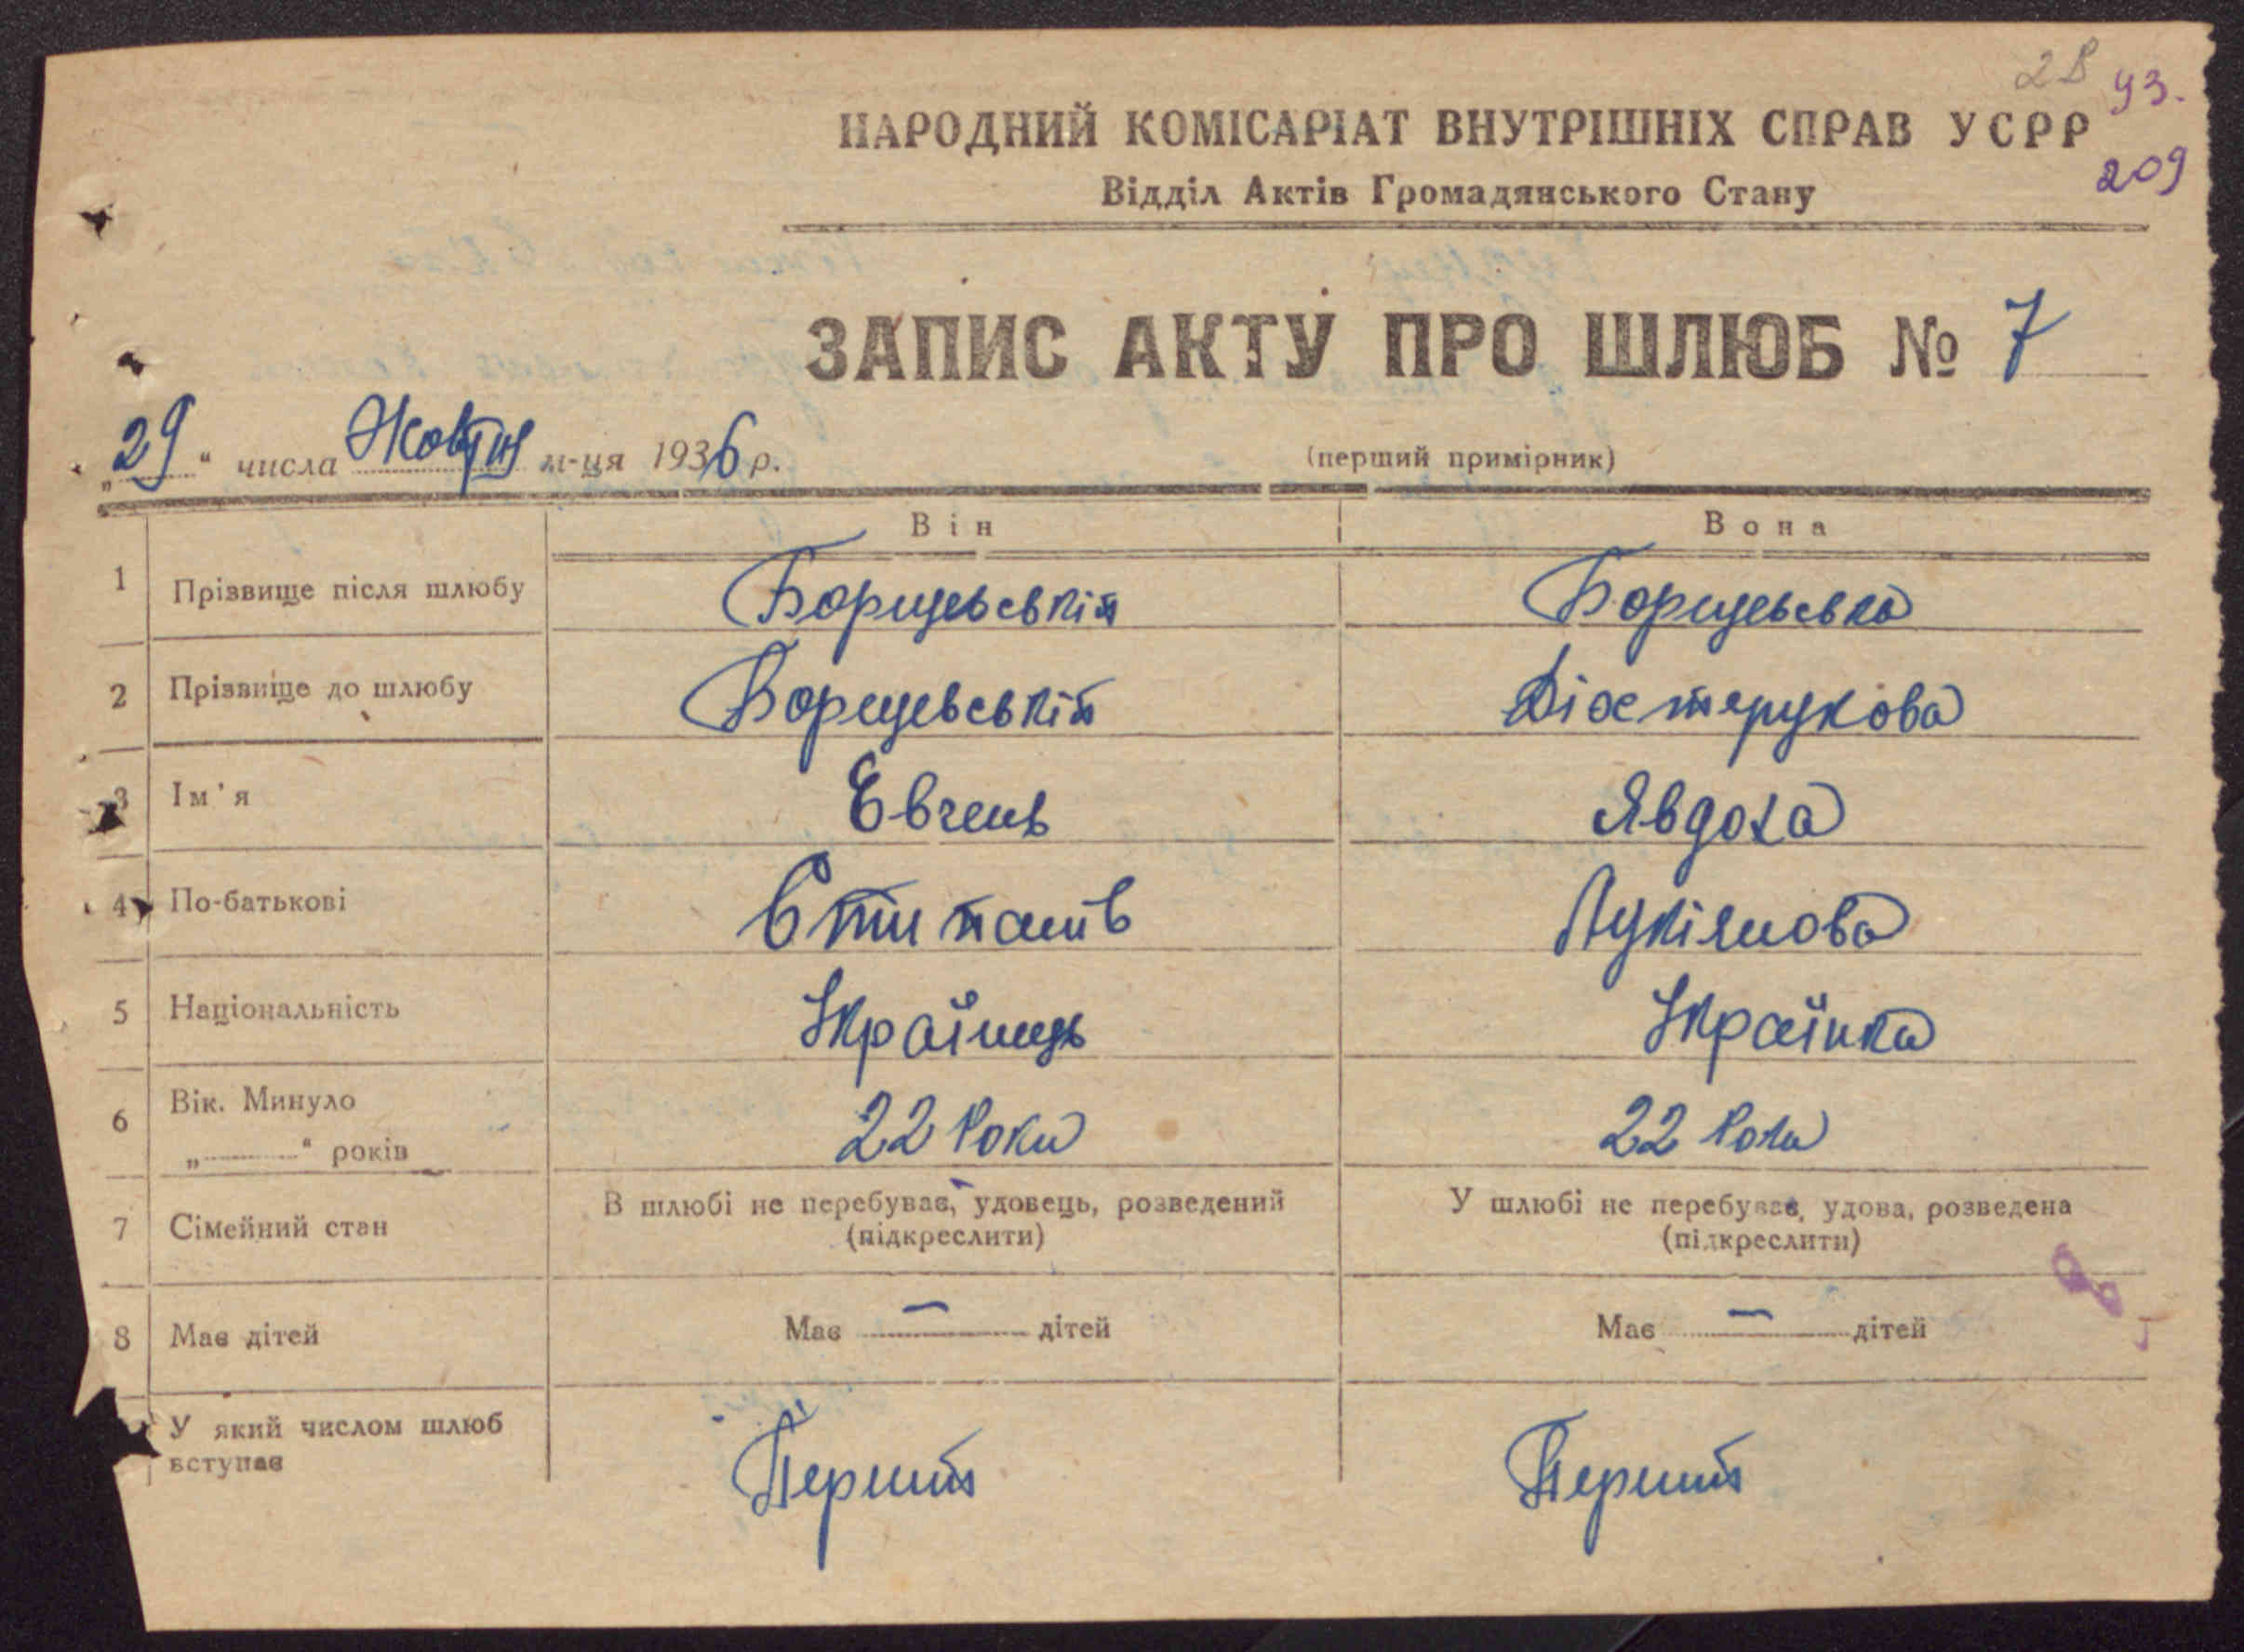 28 93.
НАРОДНИЙ КОМІСАРІАТ ВНУТРІШНІХ СПРАВ УСРР
209
Відділ Актів Громадянського Стану
ЗАПИС АКТУ ПРО ШЛЮБ № 7
„29" числа Жовтня м-ця 1936 р.
(перший примірник)
Він Вона
1 Прізвище після шлюбу Борщевській Борщевська
2 Прізвище до шлюбу Борщевській
3 Ім'я Евгень Явдоха
4 По-батькові Лукіянова
5 Національність Українець Українка
6 Вік. Минуло „ " років 22 Роки 22 Роки
7 Сімейний стан В шлюбі не перебуває, удовець, розведений (підкреслити) У шлюбі не перебуває, удова, розведена (підкреслити)
8 Має дітей Має — дітей Має — дітей
У який числом шлюб вступає Перший Перший